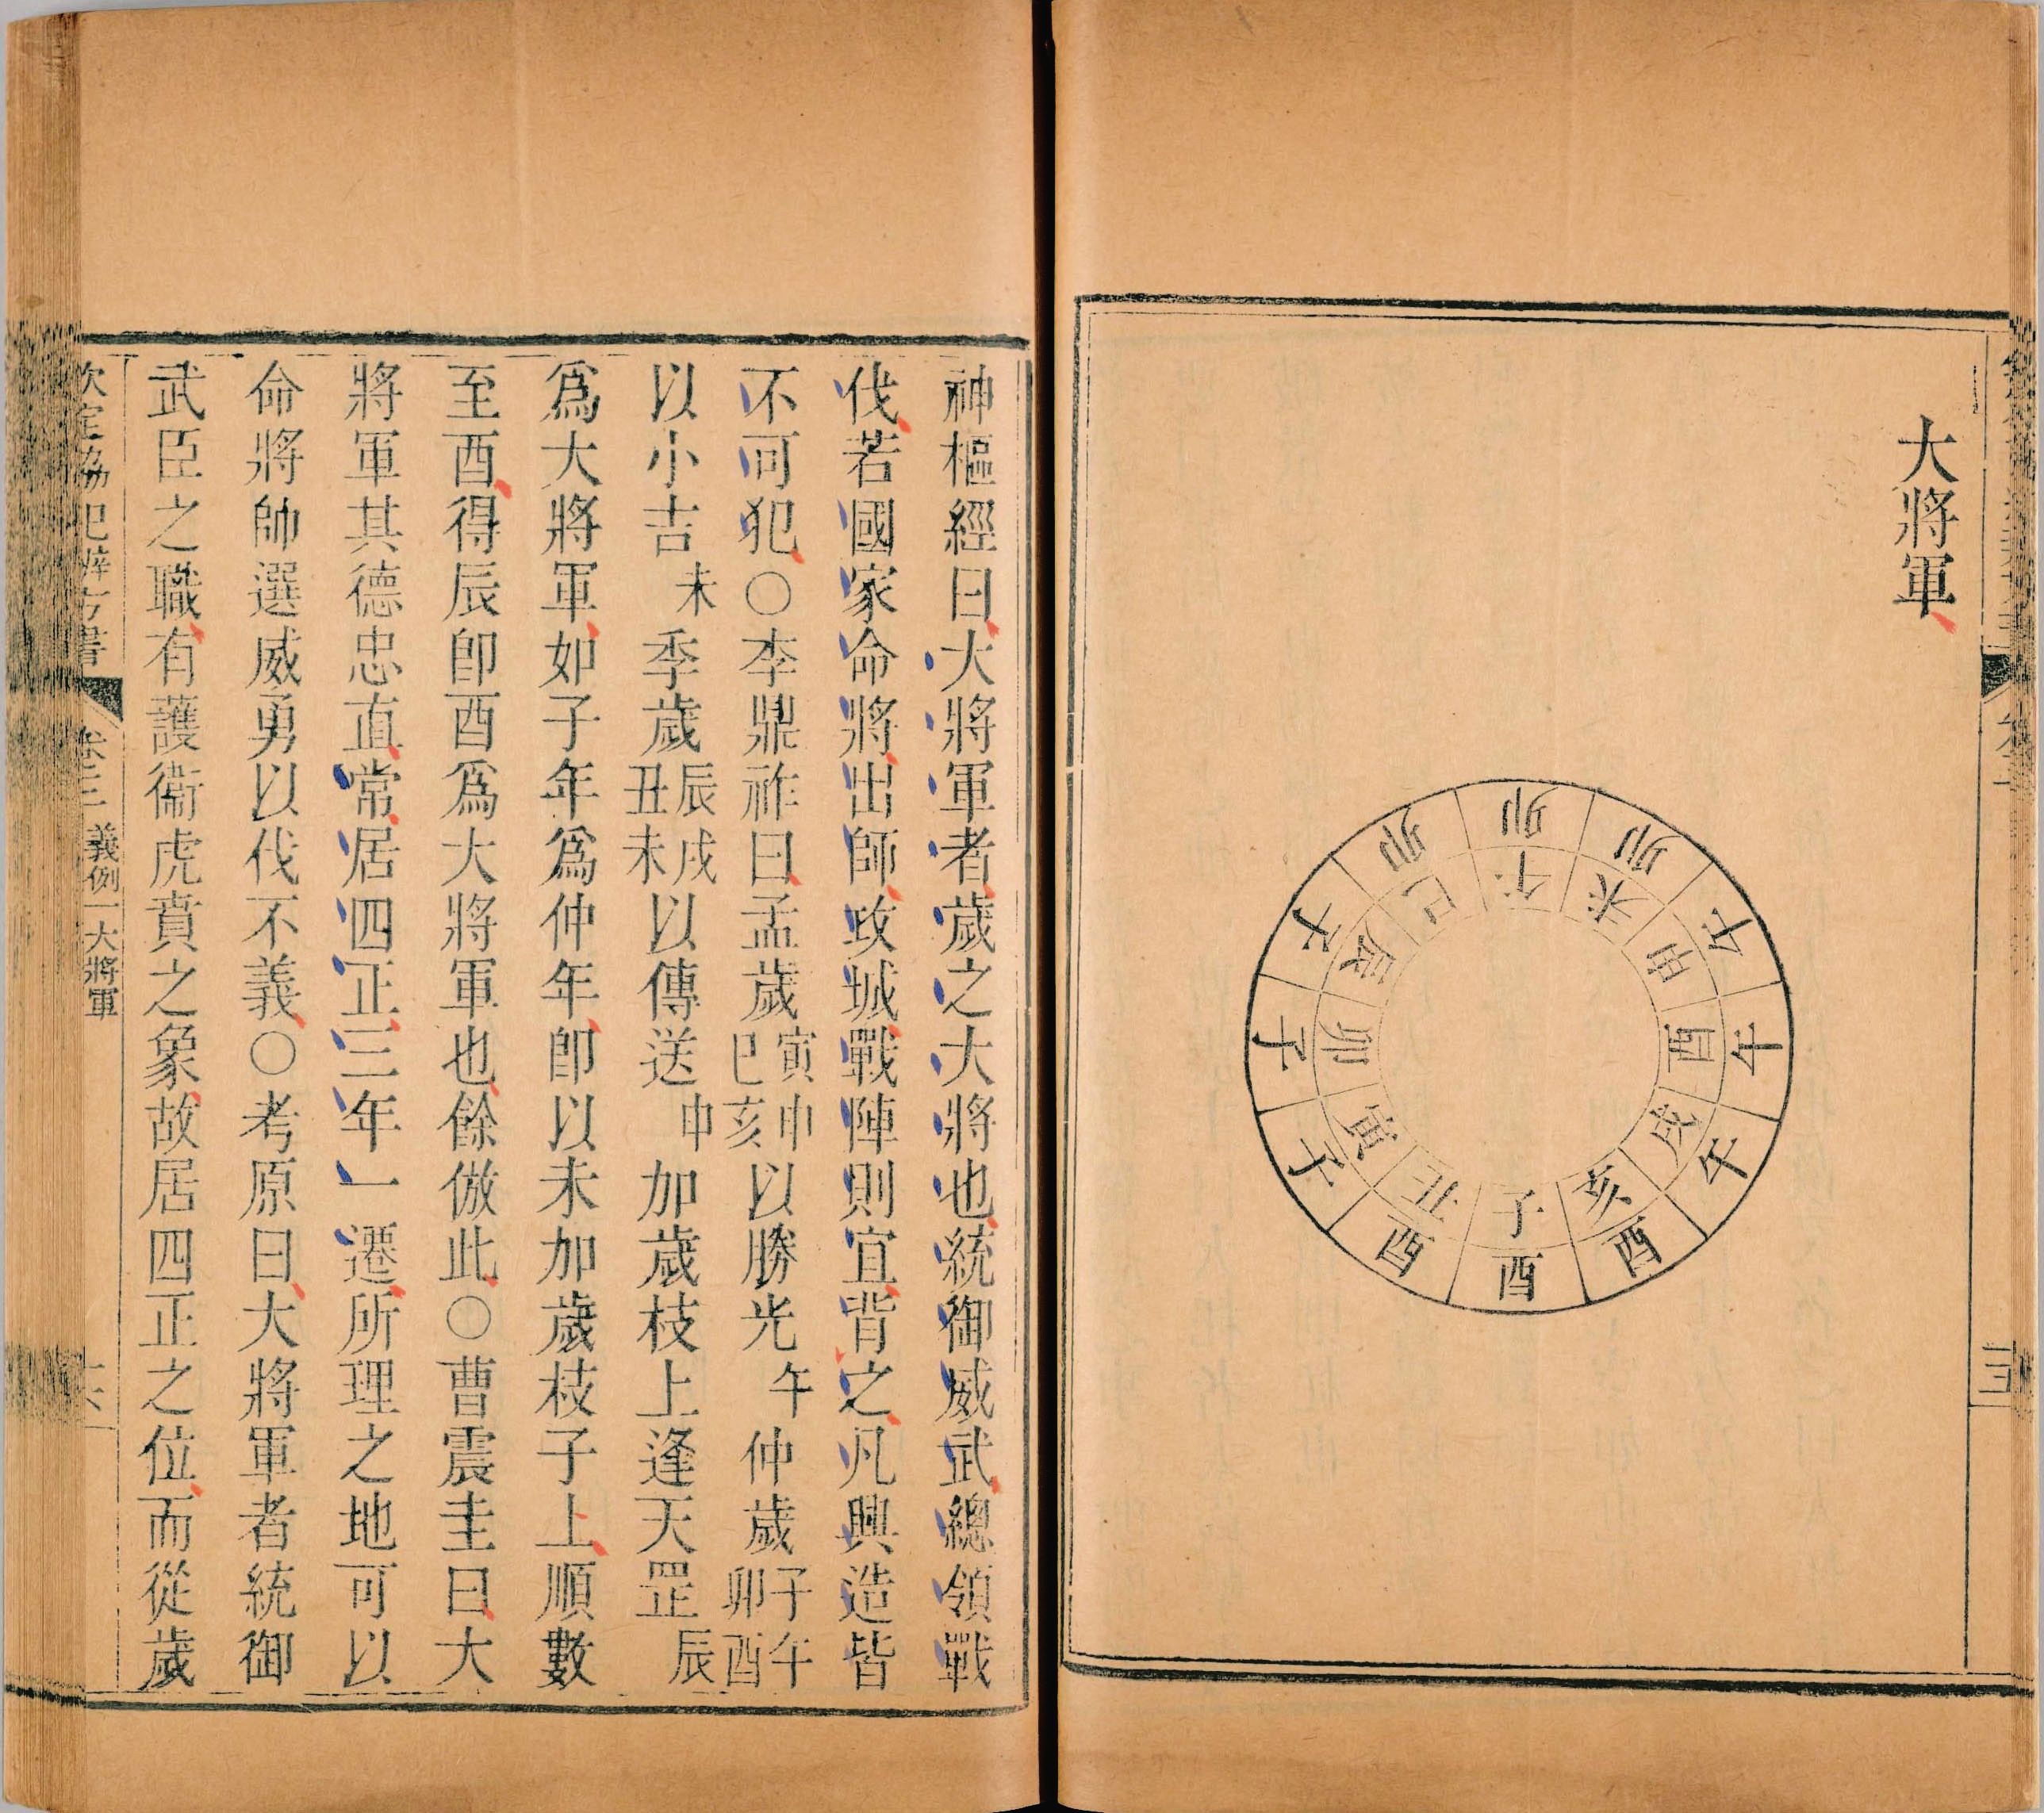 大將軍
卯
卯
卯
午
午
午
酉
酉
酉
子
子
子
午
未
申
酉
戌
亥
子
丑
寅
卯
辰
巳
神樞經曰大將軍者歲之大將也統御威武總領戰
伐若國家命將出師攻城戰陣則宜背之凡興造皆
不可犯○李鼎祚曰孟歲寅申巳亥以勝光午仲歲子午卯酉
以小吉未季歲辰戌丑未以傳送申加歲枝上逢天罡辰
爲大將軍如子年爲仲年卽以未加歲枝子上順數
至酉得辰卽酉爲大將軍也餘倣此○曹震圭曰大
將軍其德忠直常居四正三年一遷所理之地可以
命將帥選威勇以伐不義○考原曰大將軍者統御
武臣之職有護衞虎賁之象故居四正之位而從歲
欽定協紀辨方書 卷三 義例一大將軍